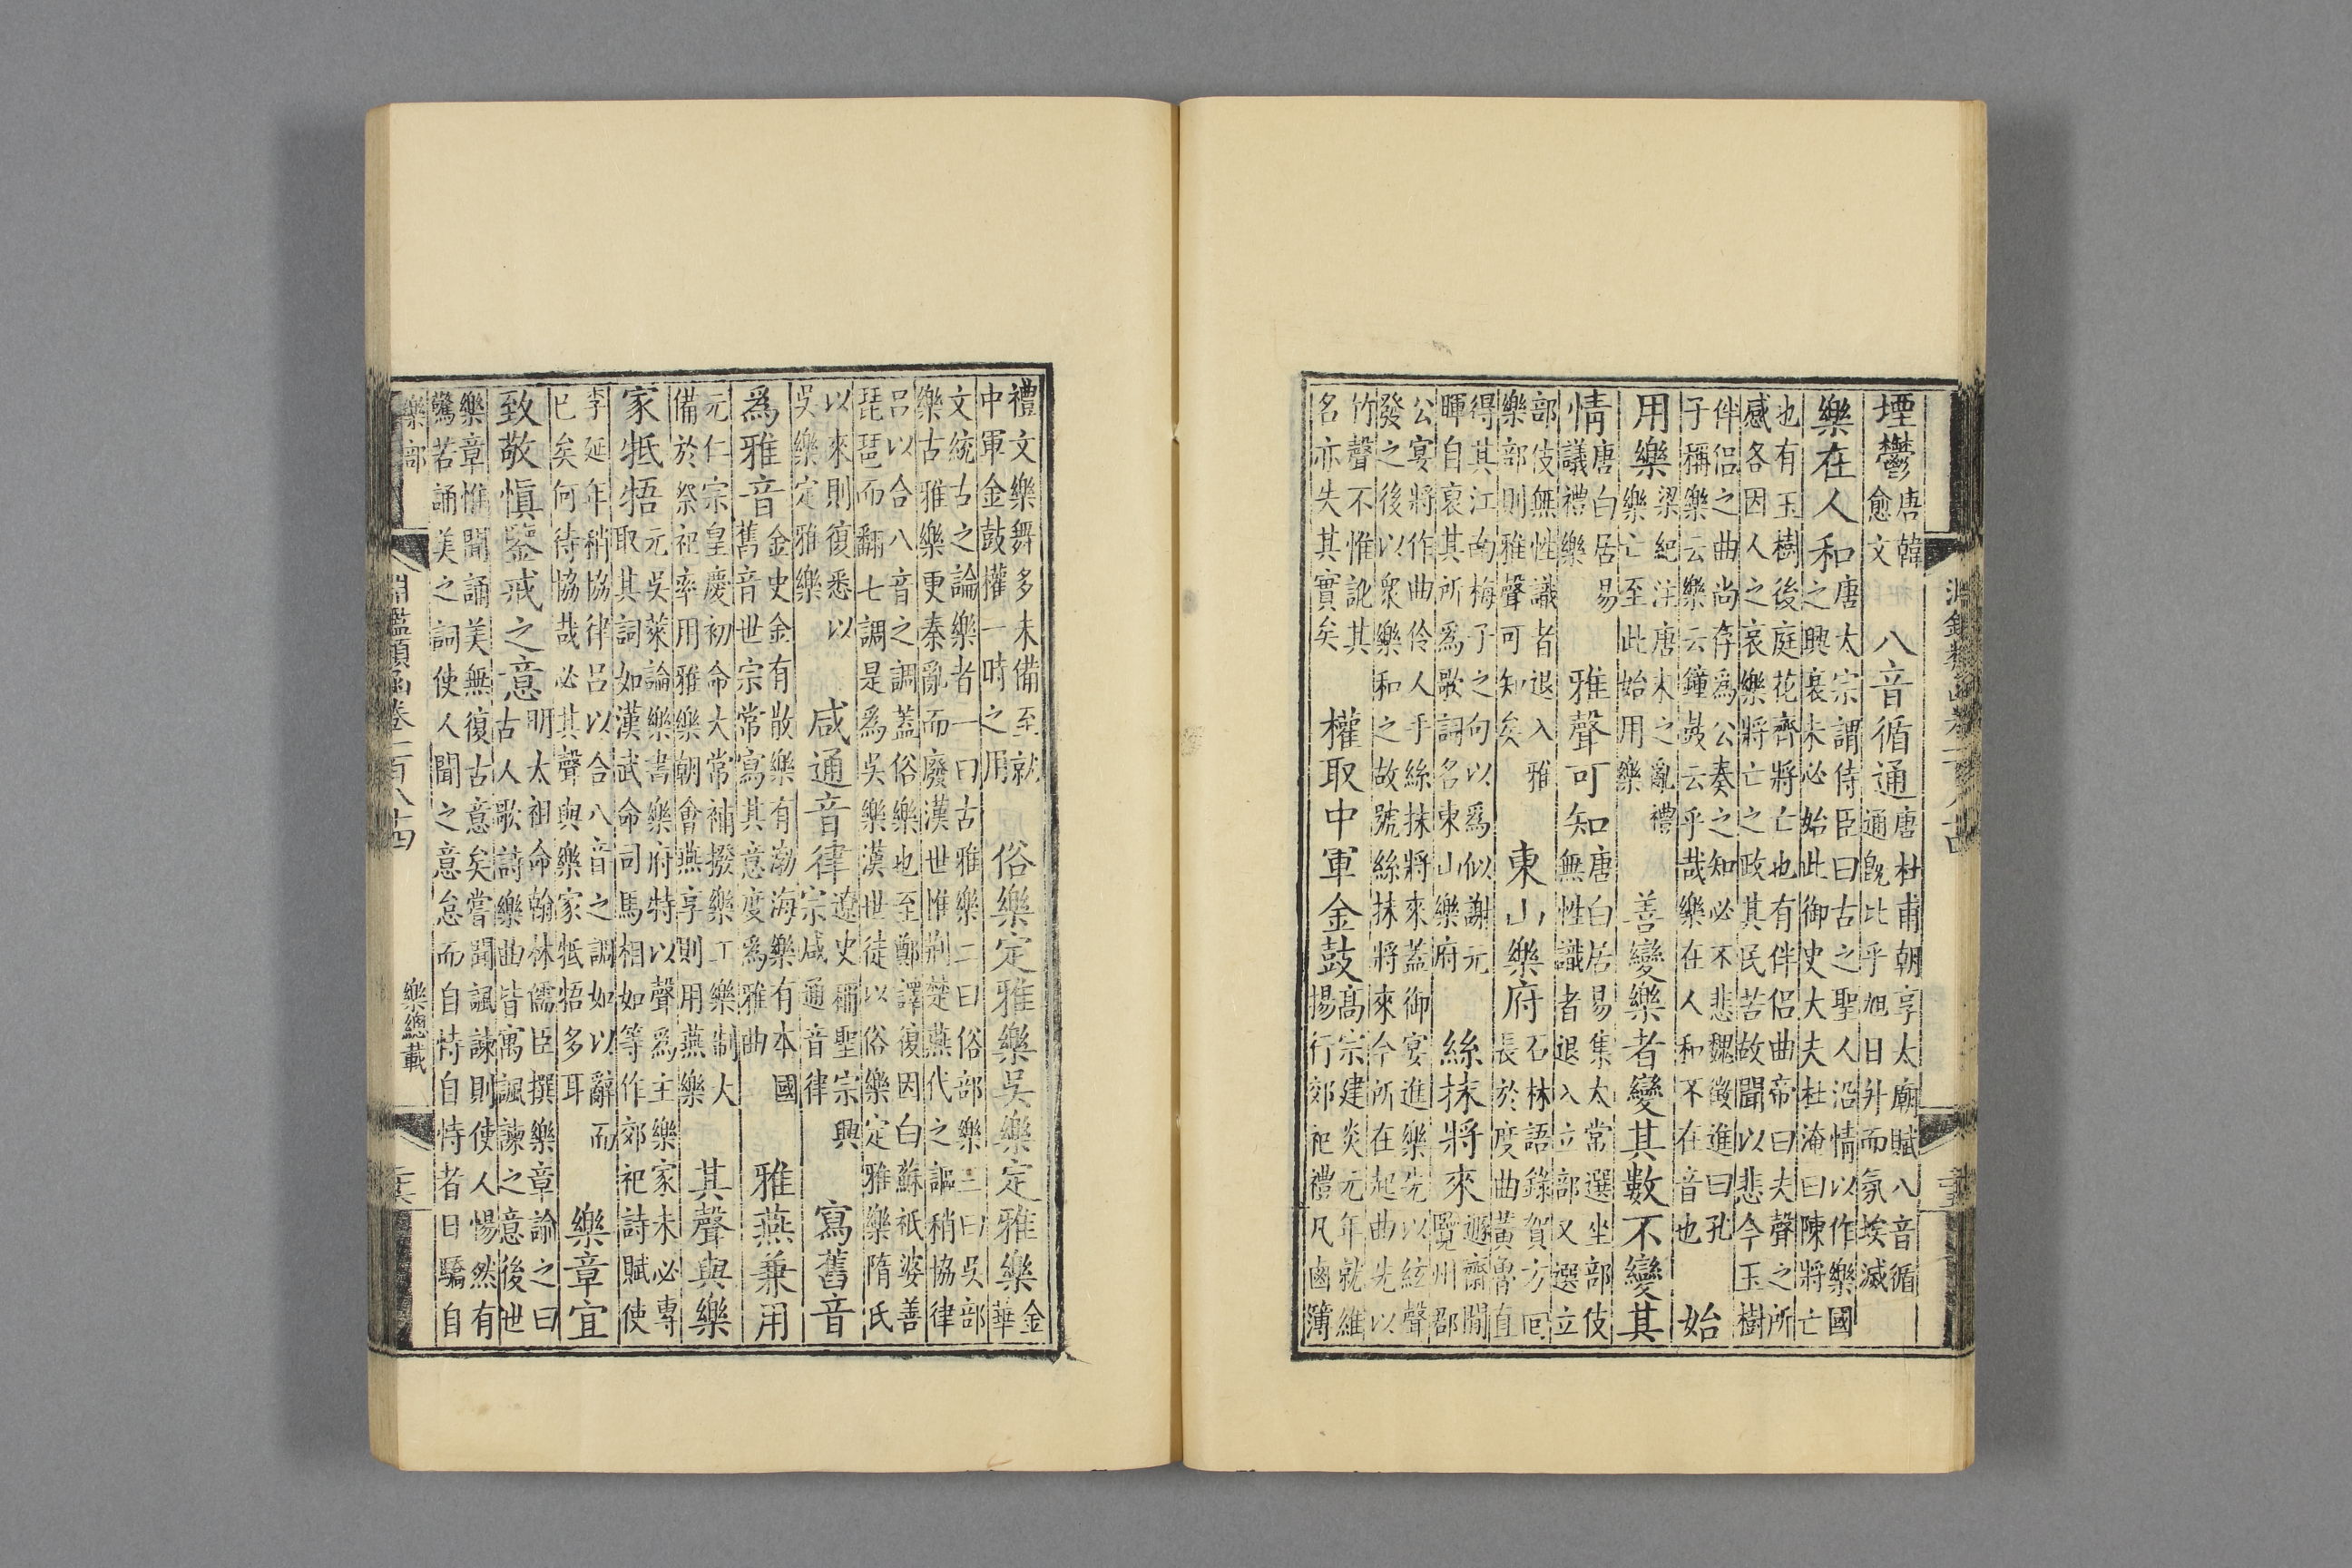 堙鬱唐韓愈文 八音循通唐杜甫朝享太廟賦八音循通旣比乎旭日升而氛埃滅
樂在人和唐太宗謂侍臣曰古之聖人沿情以作樂國之興衰未必始此御史大夫杜淹曰陳將亡
也有玉樹後庭花齊將亡也有伴侶曲帝曰夫聲之所感各因人之哀樂將亡之政其民苦故聞以悲今玉樹
伴侶之曲尚存爲公奏之知必不悲魏徵進曰孔子稱樂云樂云鐘鼓云乎哉樂在人和不在音也 始
用樂梁紀注唐末之亂禮樂亡至此始用樂 善變樂者變其數不變其
情唐白居易議禮樂 雅聲可知唐白居易集太常選坐部伎無性識者退入立部又選立
部伎無性識者退入雅樂部則雅聲可知矣 東山樂府石林語錄賀方回長於度曲黃魯直
得其江南梅子之句以爲似謝元暉自哀其所爲歌詞名東山樂府 絲抹將來遯齋閒覽州郡
公宴將作曲伶人乎絲抹將來蓋御宴進樂先以絃聲發之後以衆樂和之故號絲抹將來今所在起曲先以
竹聲不惟訛其名亦失其實矣 權取中軍金鼓高宗建炎元年就維揚行郊祀禮凡鹵簿
禮文樂舞多未備至就中軍金鼓權一時之用 俗樂定雅樂吳樂定雅樂金華
文統古之論樂者一曰古雅樂二曰俗部樂三曰吳部樂古雅樂更秦亂而廢漢世惟荆楚燕代之謳稍協律
呂以合八音之調蓋俗樂也至鄭譯復因白蘇祇婆善琵琶而翻七調是爲吳樂漢世徒以俗樂定雅樂隋氏
以來則復悉以吳樂定雅樂 咸通音律遼史稱聖宗興宗咸通音律 寫舊音
爲雅音金史金有散樂有渤海樂有本國舊音世宗常寫其意度爲雅曲 雅燕兼用
元仁宗皇慶初命大常補撥樂工樂制大備於祭祀率用雅樂朝會燕享則用燕樂 其聲與樂
家牴牾元吳萊論樂書樂府特以聲爲主樂家未必專取其詞如漢武命司馬相如等作郊祀詩賦使
李延年稍協律呂以合八音之調如以辭而已矣何待協哉必其聲與樂家牴牾多耳 樂章宜
致敬慎鑒戒之意明太祖命翰林儒臣撰樂章諭之曰古人歌詩樂曲皆寓諷諫之意後世
樂章惟聞誦美無復古意矣嘗聞諷諫則使人惕然有警若誦美之詞使人聞之意怠而自恃自恃者日驕自
樂部 淵鑑類函卷一百八十四 樂總載